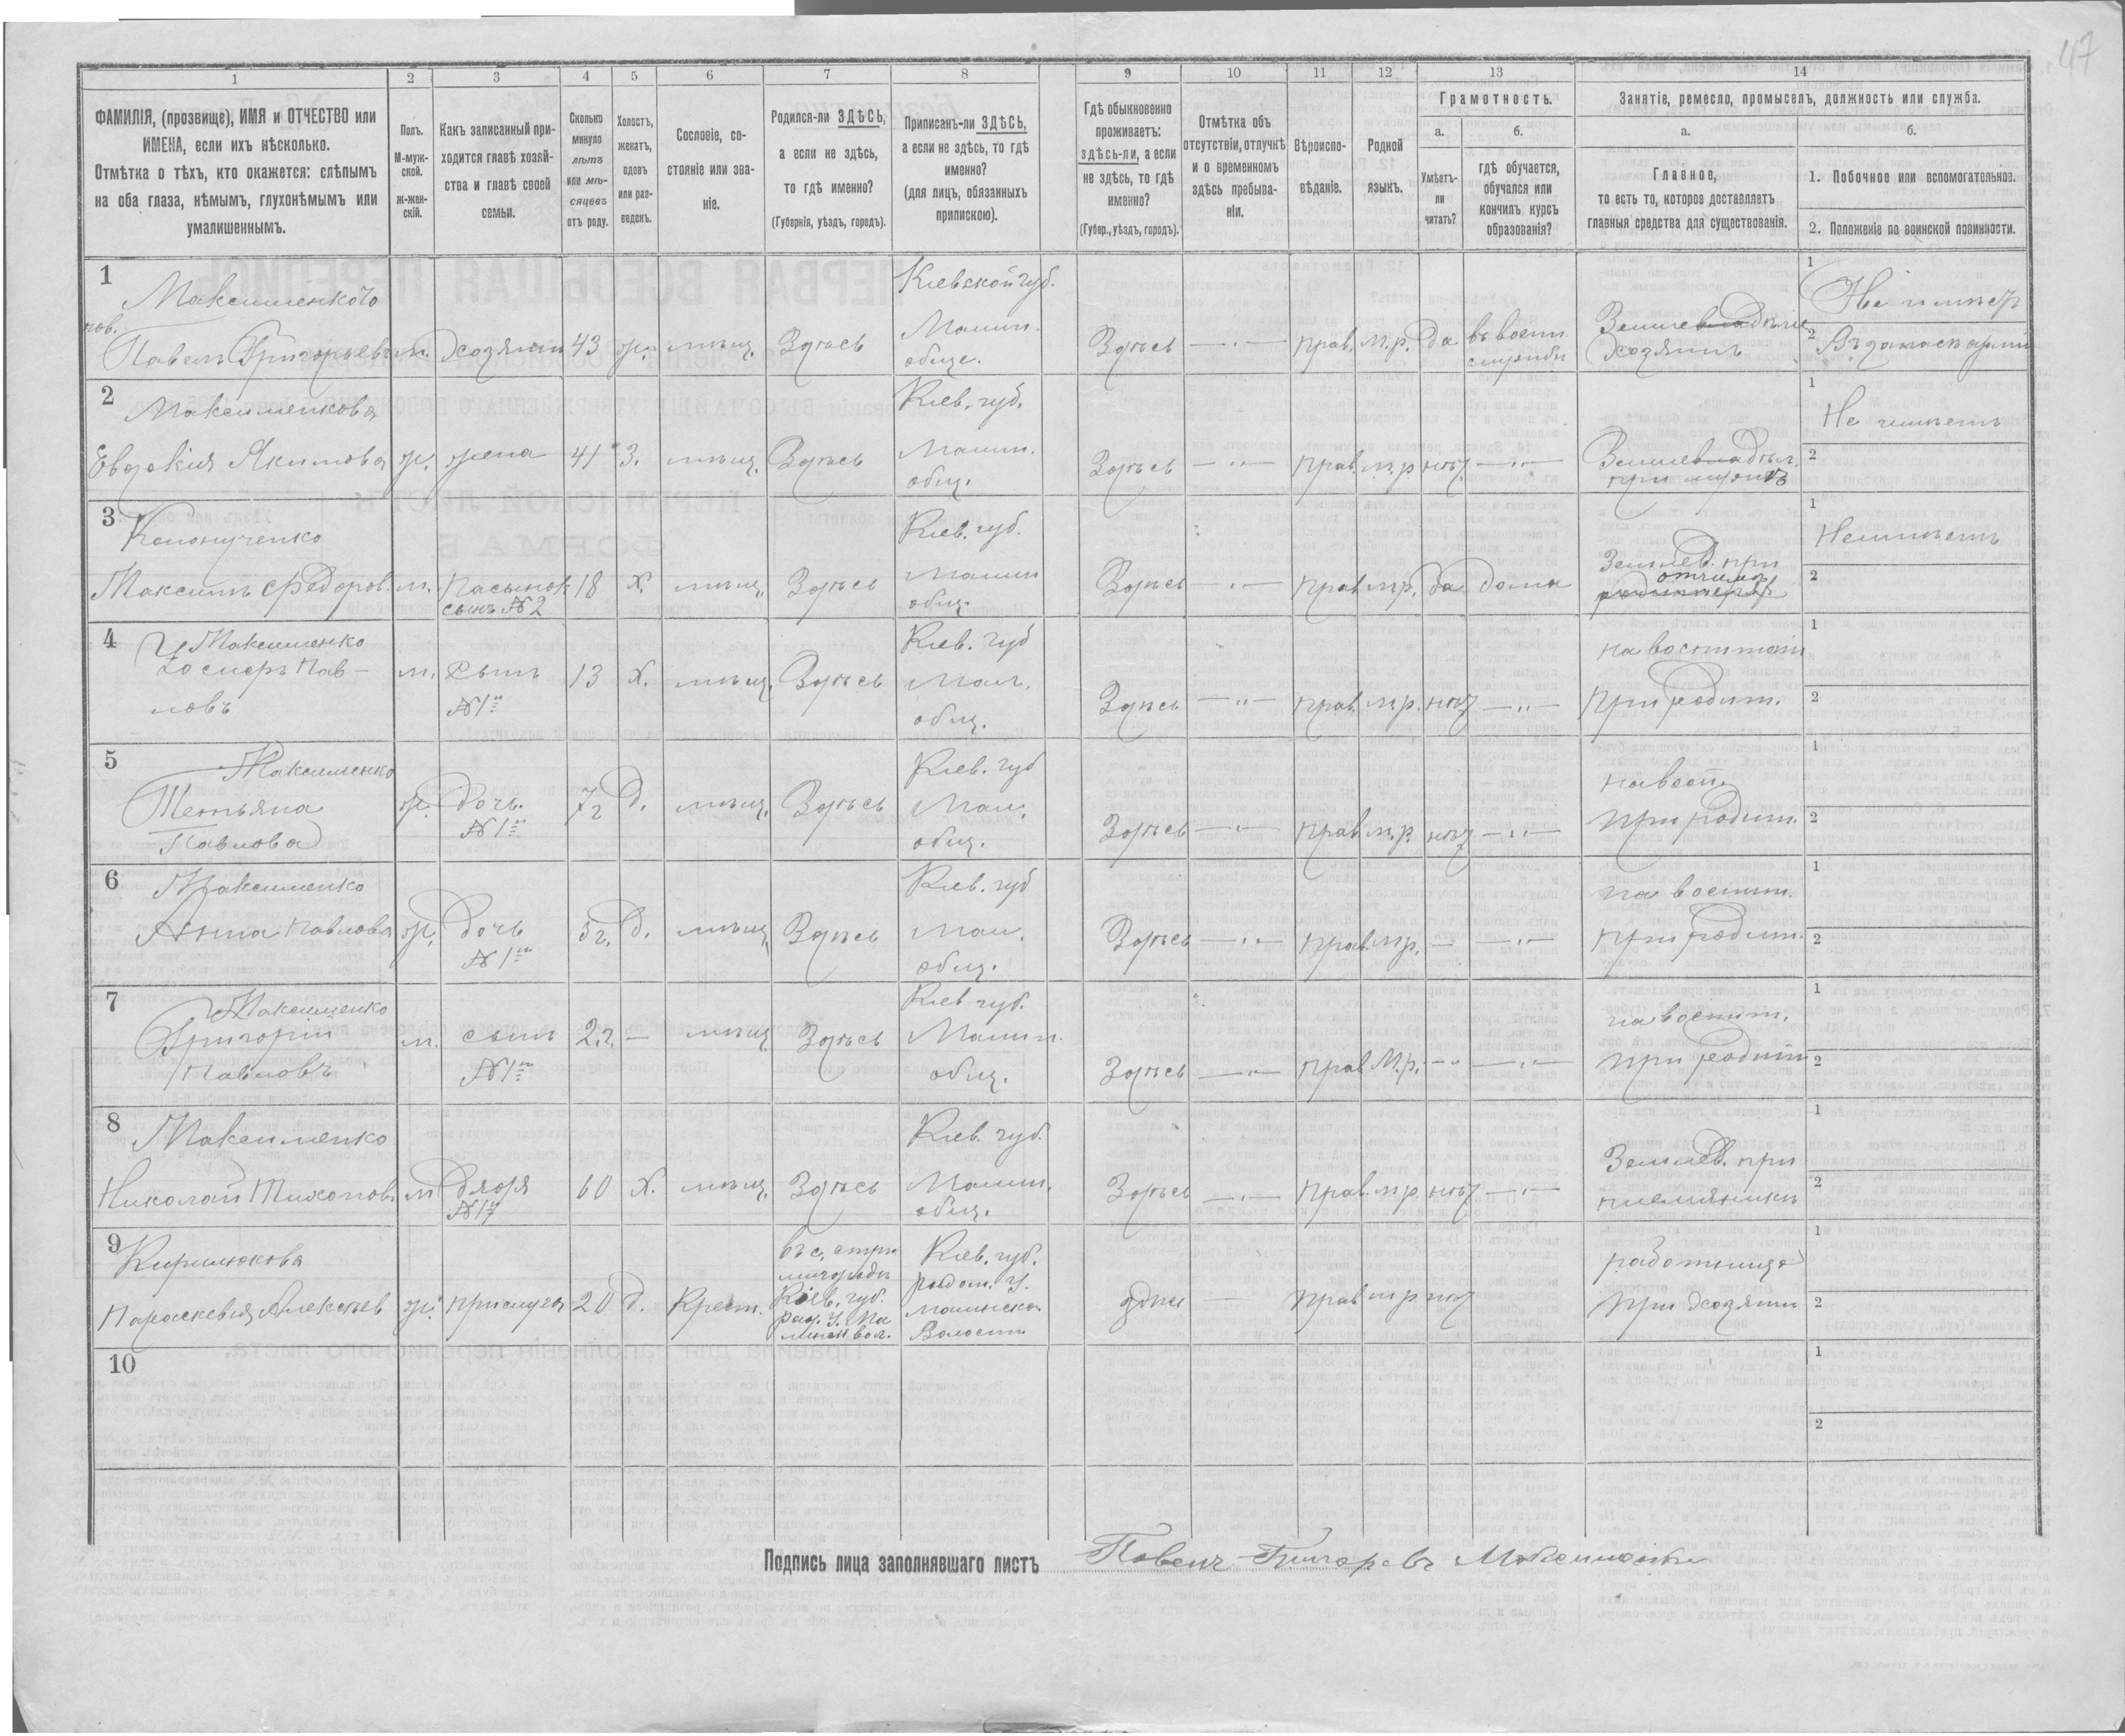 47
1 2 3 4 5 6 7 8 9 10 11 12 13 14
ФАМИЛІЯ, (прозвище), ИМЯ и ОТЧЕСТВО или
ИМЕНА, если ихъ нѣсколько.
Отмѣтка о тѣхъ, кто окажется: слѣпымъ
на оба глаза, нѣмымъ, глухонѣмымъ или
умалишеннымъ.
Полъ.
М-муж-
ской.
ж-жен-
скій.
Какъ записанный при-
ходится главѣ хозяй-
ства и главѣ своей
семьи.
Сколько
минуло
лѣтъ
или мѣ-
сяцевъ
отъ роду.
Холостъ,
женатъ,
вдовъ
или раз-
веденъ.
Сословіе, со-
стояніе или зва-
ніе.
Родился-ли ЗДѢСЬ,
а если не здѣсь,
то гдѣ именно?
(Губернія, уѣздъ, городъ).
Приписанъ-ли ЗДѢСЬ,
а если не здѣсь, то гдѣ
именно?
(для лицъ, обязанныхъ
припискою).
Гдѣ обыкновенно
проживаетъ:
здѣсь-ли, а если
не здѣсь, то гдѣ
именно?
(Губер., уѣздъ, городъ).
Отмѣтка объ
отсутствіи, отлучкѣ
и о временномъ
здѣсь пребыва-
ніи.
Вѣроиспо-
вѣданіе.
Родной
языкъ.
Грамотность.
а.
Умѣетъ-
ли
читать?
б.
гдѣ обучается,
обучался или
кончилъ курсъ
образованія?
Занятіе, ремесло, промыселъ, должность или служба.
а.
Главное,
то есть то, которое доставляетъ
главныя средства для существованія.
б.
1. Побочное или вспомогательное.
2. Положеніе по воинской повинности.
1
Павелъ Григорьевъ м. Хозяинъ 43 ж. мѣщ. Здѣсь
Кіевской губ.
Малин.
обще.
Здѣсь прав. м.р. да въ воен.
службѣ
Хозяинъ
1
2
2
Максименкова
Евдокія Якимова ж. жена 41 З. мѣщ. Здѣсь
Кіев. губ.
Малин.
общ.
Здѣсь прав. м.р. нѣт
1
Не имѣетъ
2
3
Кононученко
Максимъ Федоров. м. Пасынок.
сынъ №2
18 Х. мѣщ. Здѣсь
Кіев. губ.
Малин
общ.
Здѣсь прав. м.р. да дома
Землев. при
отчимѣ
1
Неимѣетъ
2
4
Максименко
Іосифъ Пав-
ловъ
м. сынъ
№1
13 Х. мѣщ. Здѣсь
Кіев. губ
Мал.
общ.
Здѣсь прав. м.р. нѣт
на воспитан
при родит.
1
2
5
Максименко
Тетьяна
Павлова
ж. дочь.
№1
7 г д. мѣщ. Здѣсь
Кіев. губ
Мал.
общ.
Здѣсь прав. м.р. нѣт
на восп.
при родит.
1
2
6
Максименко
Анна Павлова ж. дочь
№1
5 г. д. мѣщ. Здѣсь
Кіев. губ
Мал.
общ.
Здѣсь прав. м.р. —
на воспит.
при родит.
1
2
7
Максименко
Григорій
Павловъ
м. сынъ
№1
2 г. — мѣщ. Здѣсь
Кіев губ.
Малин.
общ.
Здѣсь прав М.р.
на воспит.
при родит
1
2
8
Максименко
Николай Тихонов. м дядя
№1
60 Х. мѣщ. Здѣсь
Кіев. губ.
Малин.
общ.
Здѣсь прав. м.р. нѣт
Землев. при
племянникѣ
1
2
9
Кирилюкова
Параскевія Алексѣев ж. прислуга 20 д. Крест.
Кіев. губ.
Кіев. губ.
радом. у.
Малинской
Волости
прав м.р. нѣт
работница
при хозяинѣ
1
2
10
1
2
Подпись лица заполнявшаго листъ Павелъ Григоревъ Максименко